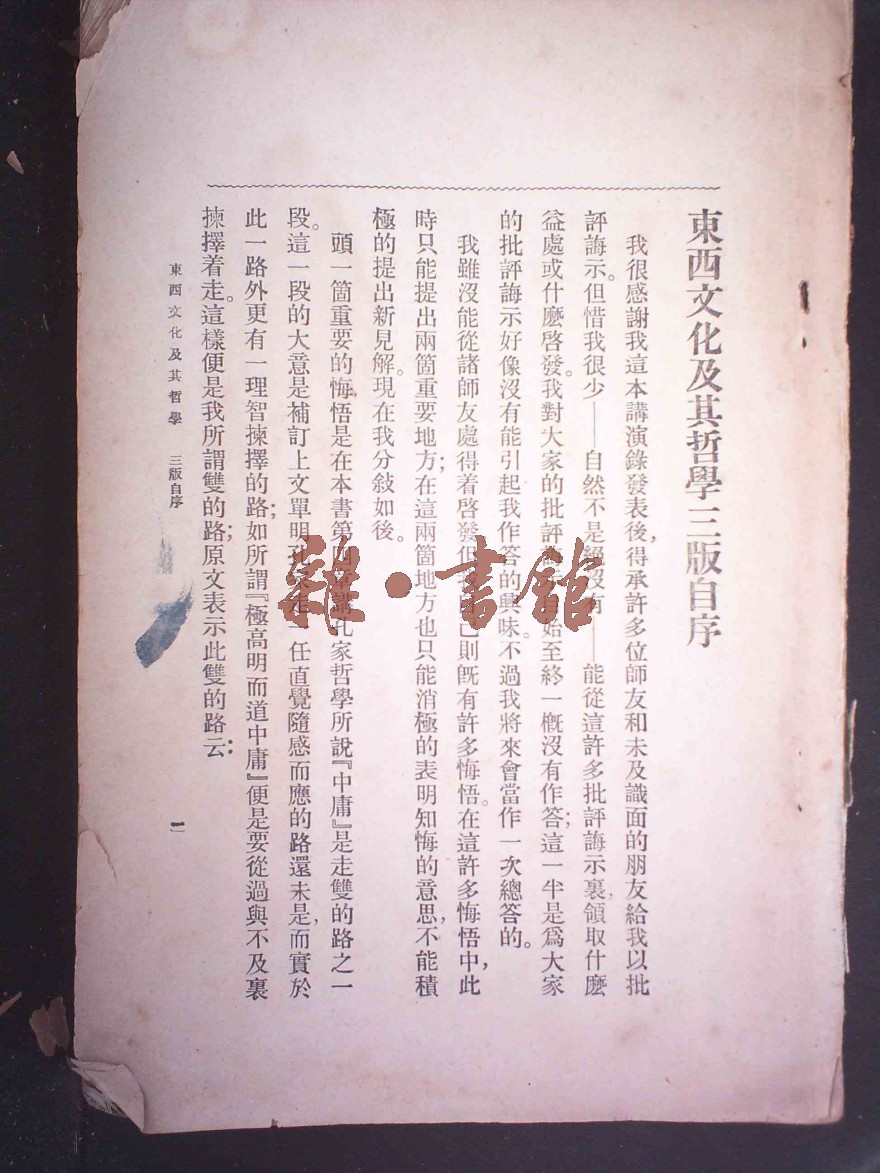 東西文化及其哲學三版自序
我很感謝我這本講演錄發表後,得承許多位師友和未及識面的朋友給我以批
評誨示。但惜我很少——自然不是絕沒有——能從這許多批評誨示裏,領取什麼
益處或什麼啓發。我對大家的批評自始至終一槪沒有作答;這一半是爲大家
的批評誨示好像沒有能引起我作答的興味。不過我將來會當作一次總答的。
我雖沒能從諸師友處得着啓發,但自己則旣有許多悔悟。在這許多悔悟中,此
時只能提出兩箇重要地方;在這兩箇地方也只能消極的表明知悔的意思,不能積
極的提出新見解。現在我分敍如後。
頭一箇重要的悔悟是在本書第四章講孔家哲學所說『中庸』是走雙的路之一
段。這一段的大意是補訂上文單明孔家走一任直覺隨感而應的路還未是,而實於
此一路外更有一理智揀擇的路;如所謂『極高明而道中庸』便是要從過與不及裏
揀擇着走。這樣便是我所謂雙的路;原文表示此雙的路云:
東西文化及其哲學 三版自序
一
雜·書館